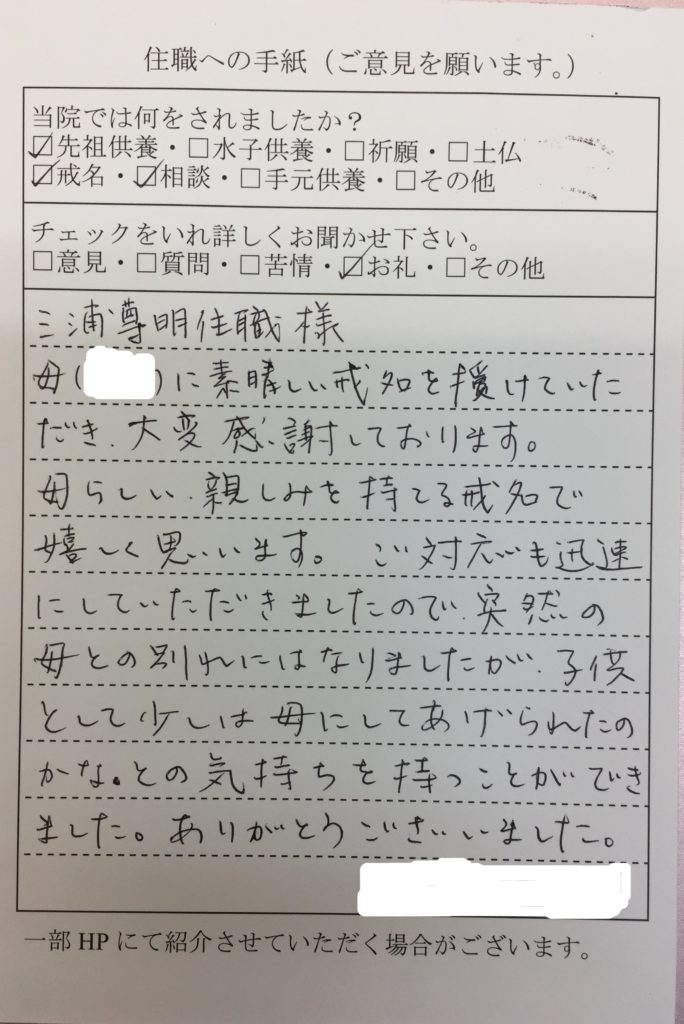 住職への手紙（ご意見を願います。）
当院では何をされましたか？
☑先祖供養・□水子供養・□祈願・□土仏
☑戒名・☑相談・□手元供養・□その他
チェックをいれ詳しくお聞かせ下さい。
□意見・□質問・□苦情・☑お礼・□その他
三浦尊明住職様
母(　　)に素晴しい戒名を授けていた
だき、大変感謝しております。
母らしい、親しみを持てる戒名で
嬉しく思います。ご対応も迅速
にしていただきましたので、突然の
母との別れにはなりましたが、子供
として少しは母にしてあげられたの
かな。との気持ちを持つことができ
ました。ありがとうございいました。
一部HPにて紹介させていただく場合がございます。